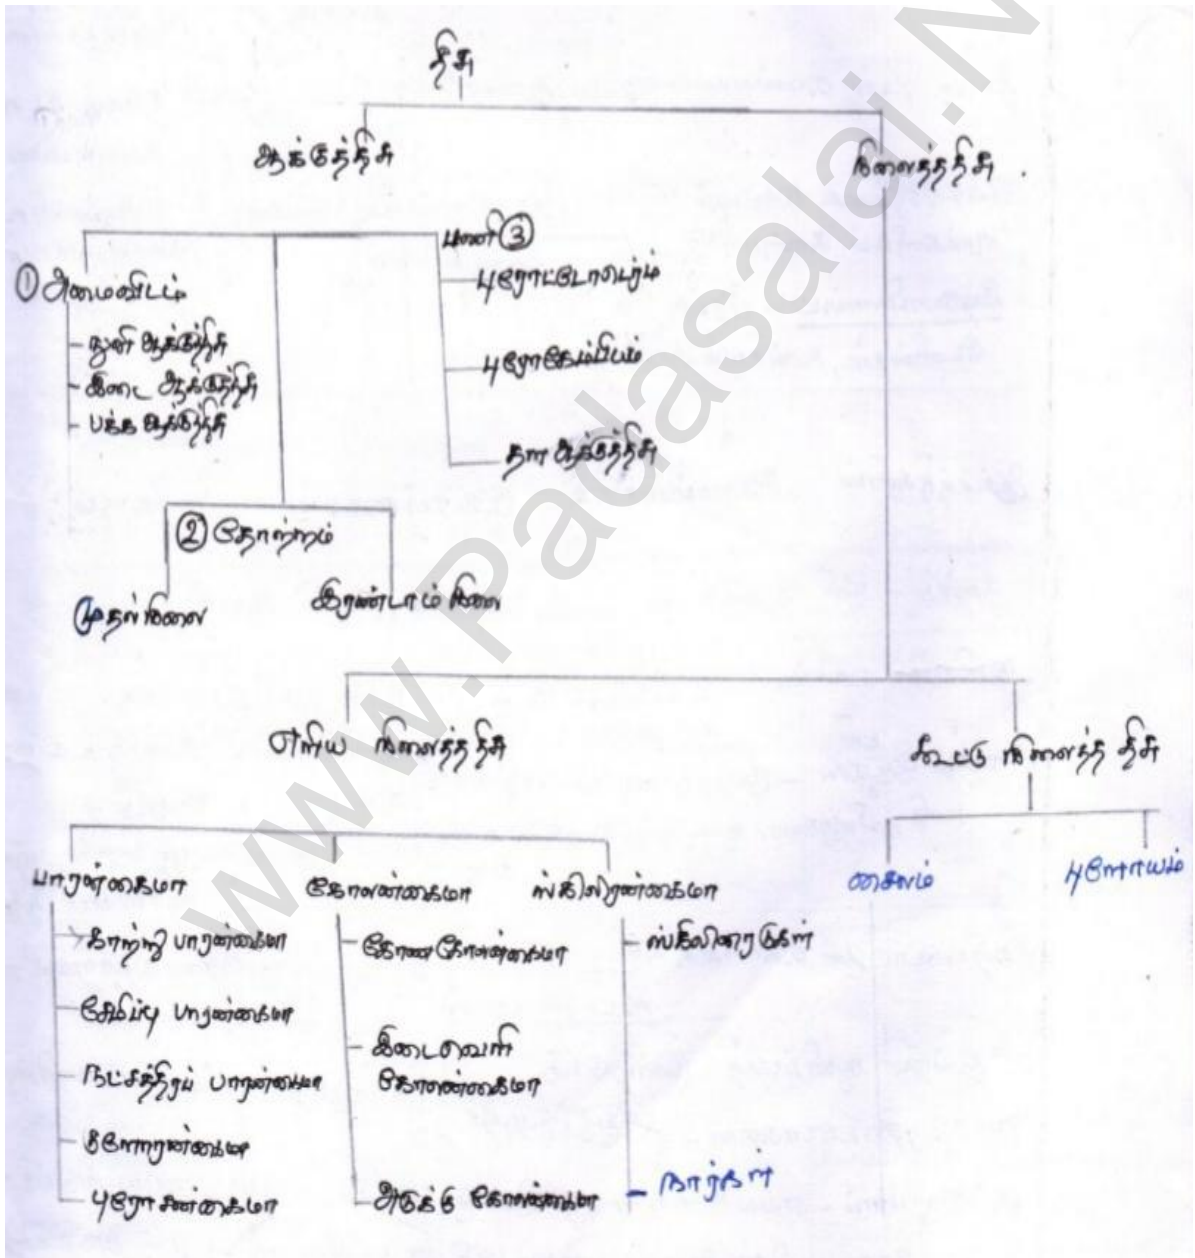 திசு
ஆக்குத்திசு
நிலைத்ததிசு .
① அமைவிடம்
- நுனி ஆக்குத்திசு
- இடை ஆக்குத்திசு
- பக்க ஆக்குத்திசு
② தோற்றம்
முதல்நிலை
இரண்டாம் நிலை
பணி ③
புரோட்டோடெர்ம்
புரோகேம்பியம்
தள ஆக்குத்திசு
எளிய நிலைத்த திசு
கூட்டு நிலைத்த திசு
பாரன்கைமா
காற்று பாரன்கைமா
சேமிப்பு பாரன்கைமா
நட்சத்திரப் பாரன்கைமா
குளோரன்கைமா
புரோசன்கைமா
கோலன்கைமா
கோண கோலன்கைமா
இடைவெளி
கோலன்கைமா
அடுக்கு கோலன்கைமா
ஸ்கிலிரன்கைமா
- ஸ்கிலிரைடுகள்
- நார்கள்
சைலம்
புளோயம்
www.Padasalai.N